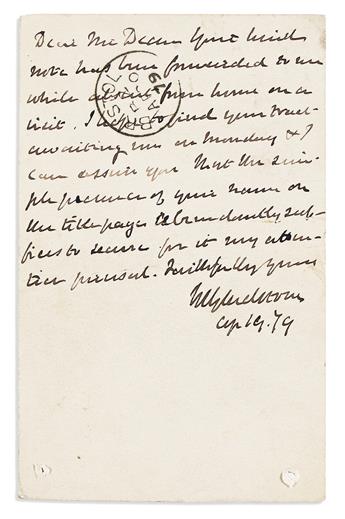 Dear Mr Dean Your kind
note has been forwarded to me
while absent from home on a
visit. I hope to find your tract
awaiting me on Monday & I
can assure you that the sim-
ple presence of your name on
the title page abundantly suf-
fices to secure for it my atten-
tive perusal. Faithfully yours
WEGladstone
Ap 19. 79
BRISTOL
AP
79